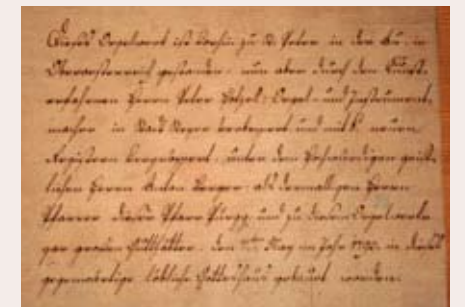 Dieses Orgelwerk ist vorhin zu St. Peter in der Au in
Oberoesterreich gestanden, nun aber durch den Kunst-
erfahrnen Herrn Peter Hötzel, Orgel- und Instrument-
macher in und mit 6 neuen
Registern unter dem Hochwürdigen geist-
lichen Herrn Anton Berger als dermaligen Herrn
Pfarrer dieser Pfarr Pürgg und zu diesem Orgelwerk
gar grossen Gutthätter, den May im Jahr 1790 in dieses
gegenwärtige löbliche Gotteshaus gebaut worden.